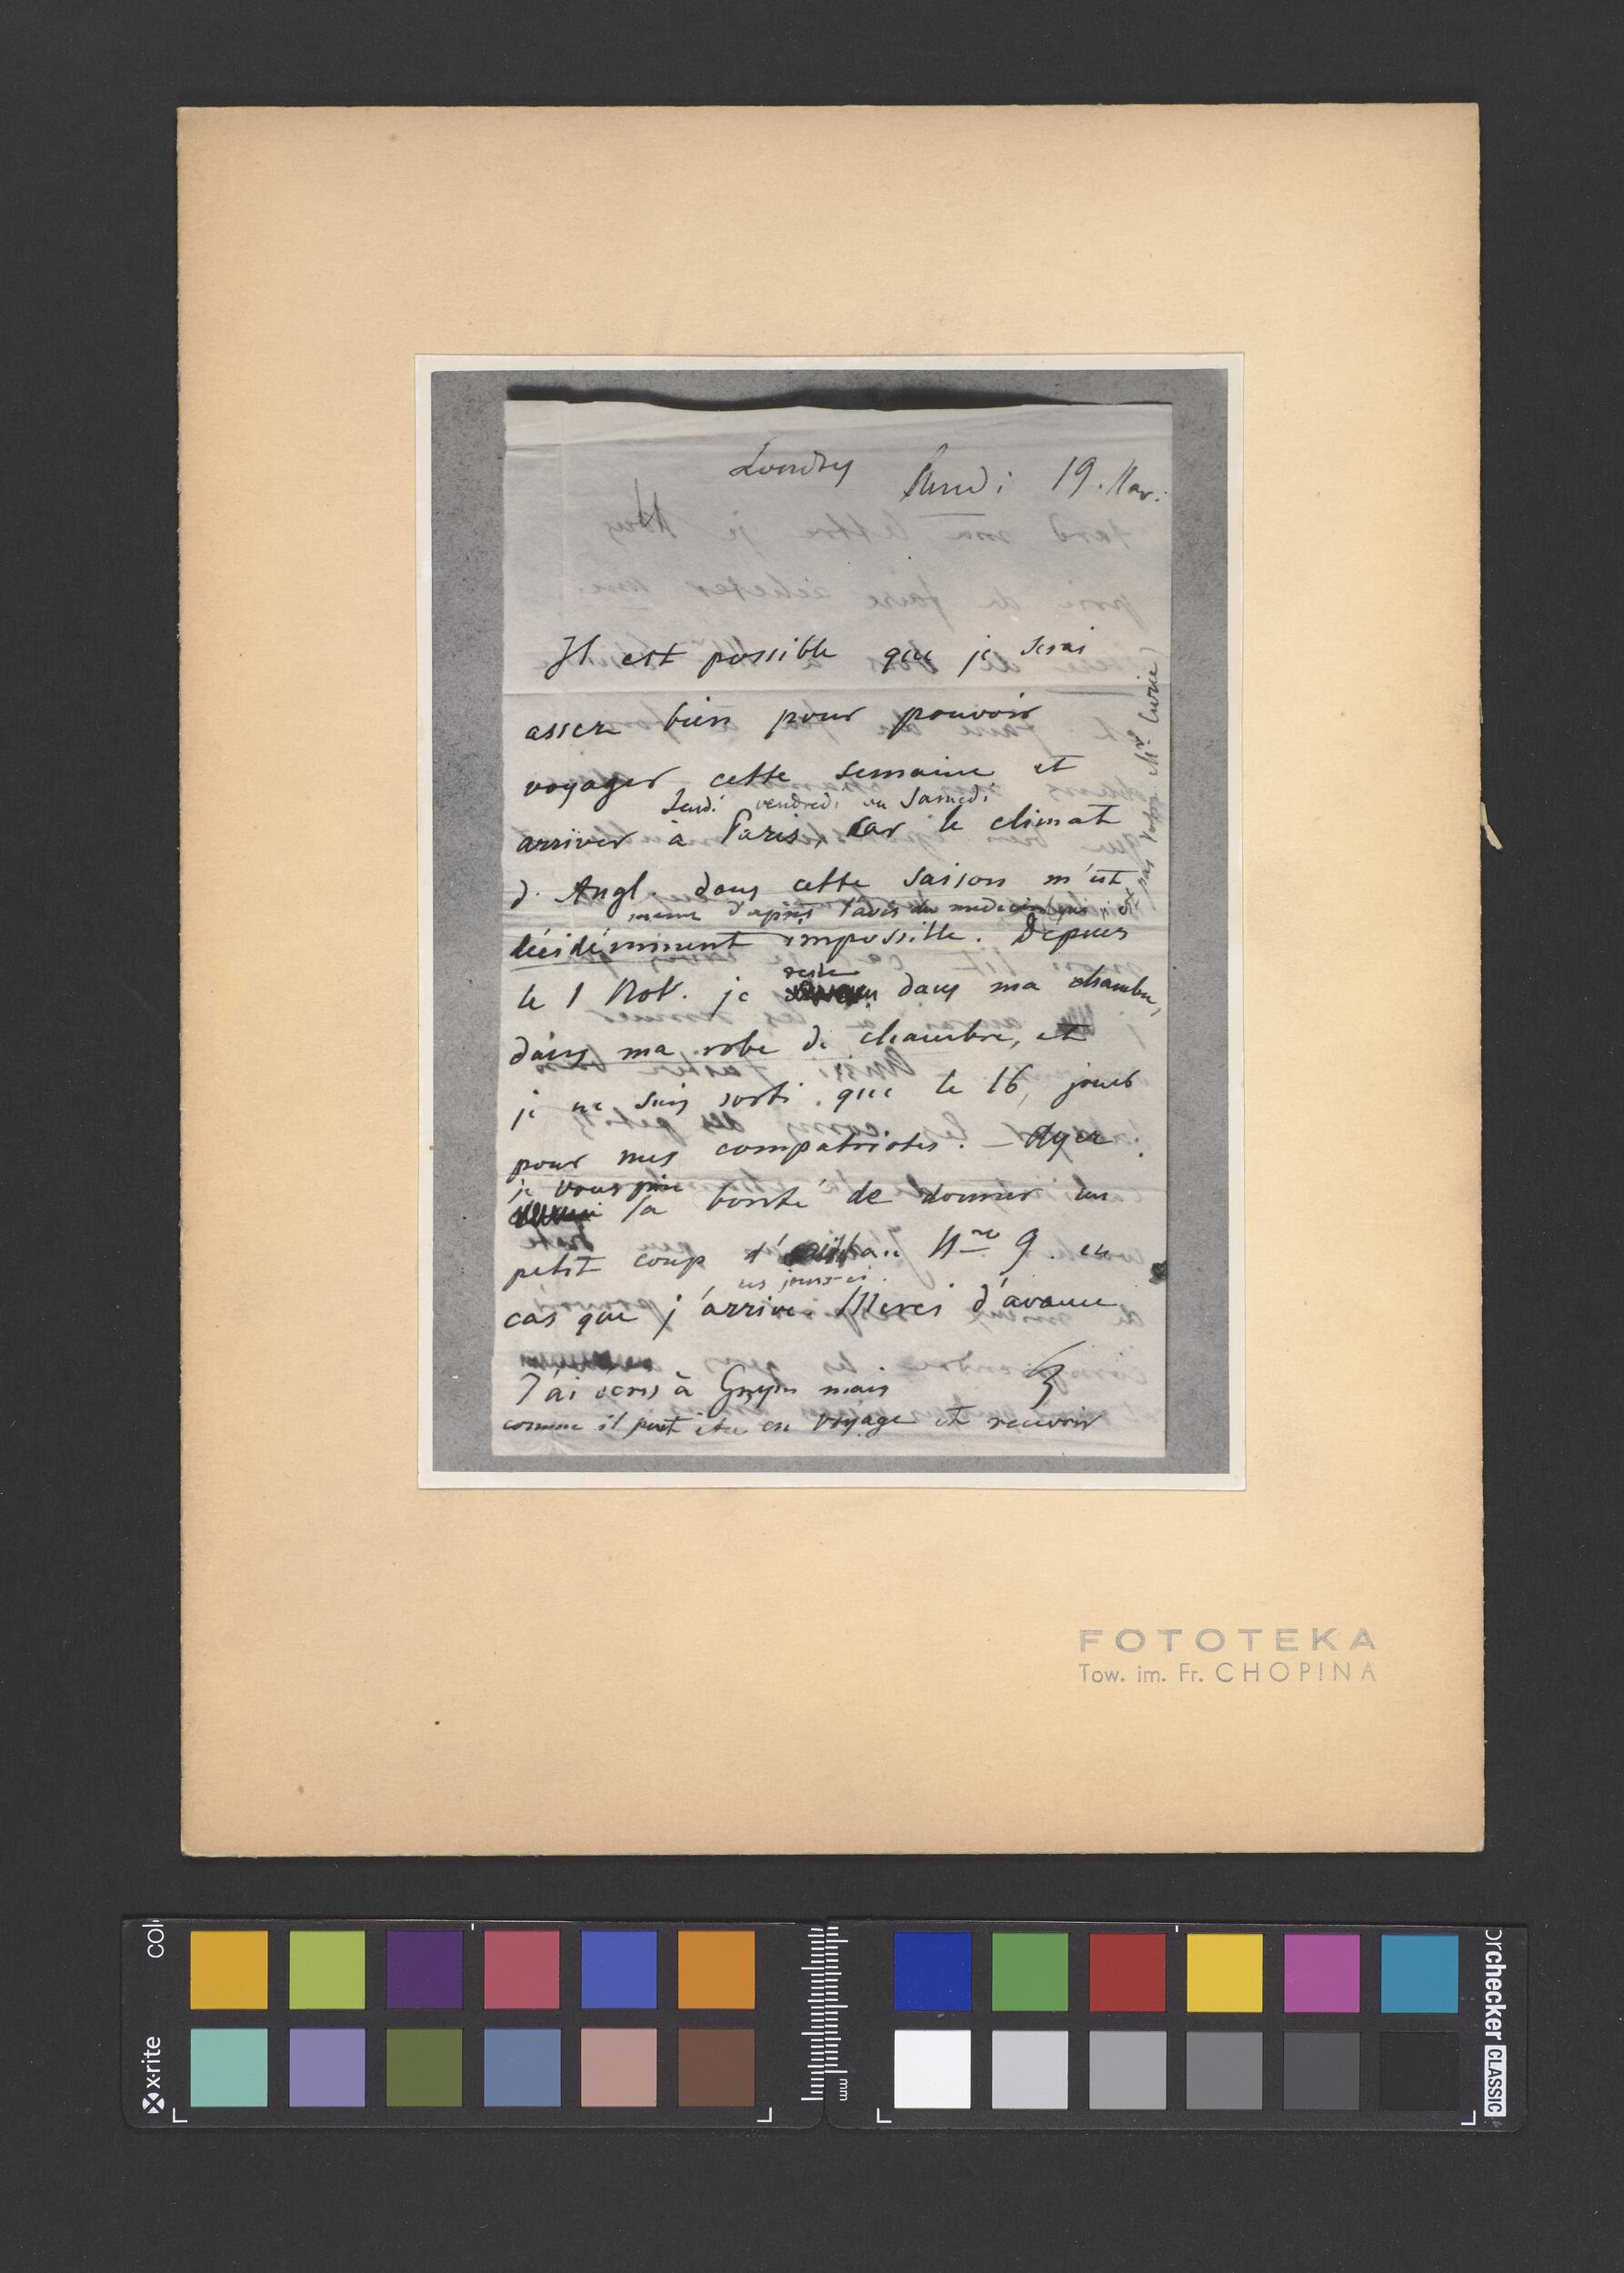 Londres Lundi 19. Nov.
Il est possible que je serai
assez bien pour pouvoir
voyager cette semaine et
Jeudi vendredi ou Samedi
arriver à Paris, Car le climat
d. Angl. dans cette saison m'est
même d'après l'avis du medecin (qui n'est pas Votre Mr Curie)
décidémment impossible. Dépuis
le 1 Nov. je reste dans ma chambre,
dans ma robe de chambre, et
je ne suis sorti que le 16, jouer
pour mes compatriotes. – Ayez
je vous prie
la bonté de donner un
petit coup d' au Nro 9. en
ces jours-ci.
cas que j'arrive. Merci d'avance.
J'ai écris à Grzym mais
comme il peut être en voyage et recevoir
FOTOTEKA
Tow. im. Fr. CHOPINA
x-rite
mm
checker CLASSIC